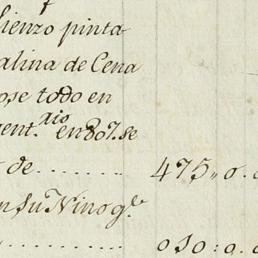 Lienzo pinta
alina de Cena
ose todo en
gent.xio en 807. se
de......... 475,, 0.
en su Nino g.e
......... 010: 0.